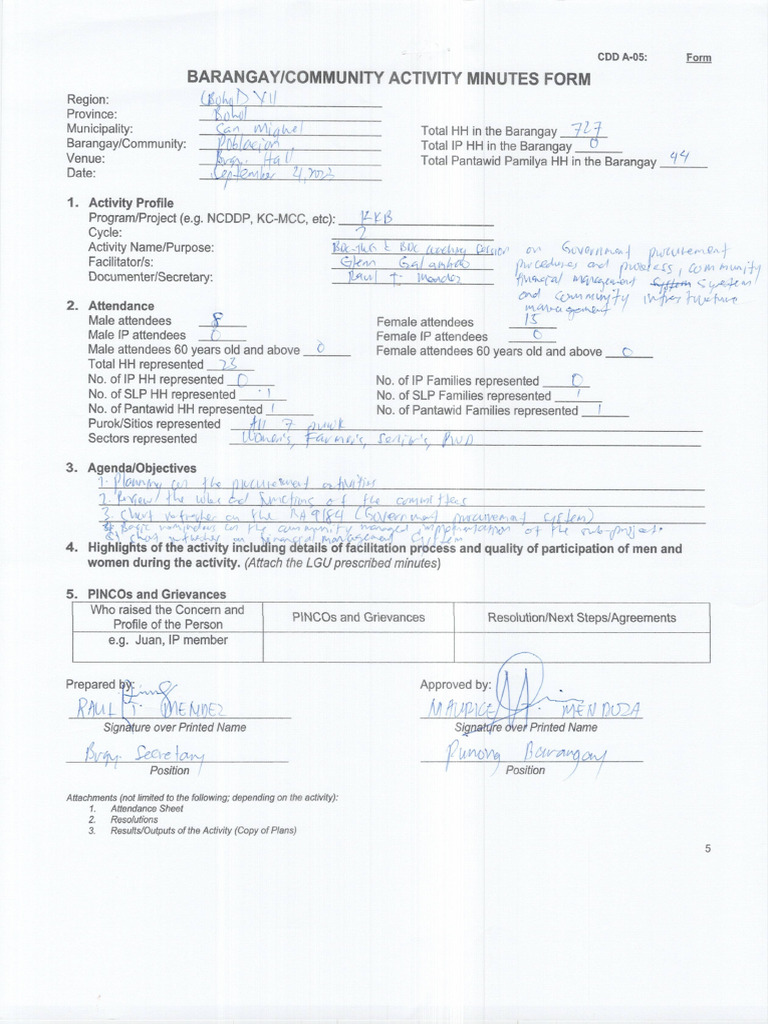 CDD A-05: Form
BARANGAY/COMMUNITY ACTIVITY MINUTES FORM
Region: (Bohol) VII
Province: Bohol
Municipality: San Miguel
Barangay/Community: Poblacion
Venue: Brgy. Hall
Date: September 4, 2023
Total HH in the Barangay 727
Total IP HH in the Barangay 0
Total Pantawid Pamilya HH in the Barangay 44
1. Activity Profile
Program/Project (e.g. NCDDP, KC-MCC, etc): KKB
Cycle: 2
Activity Name/Purpose: BDC-TWG & BDC Coaching Session on Government procurement
procedures and process, community
financial management system
and community infrastructure
management
Facilitator/s: Glenn
Documenter/Secretary: Raul T. Mendez
2. Attendance
Male attendees 8
Male IP attendees 0
Male attendees 60 years old and above 0
Total HH represented 23
No. of IP HH represented 0
No. of SLP HH represented 1
No. of Pantawid HH represented 1
Purok/Sitios represented All 7 purok
Sectors represented Women's, Farmer's, Senior's, PWD
Female attendees 15
Female IP attendees 0
Female attendees 60 years old and above 0
No. of IP Families represented 0
No. of SLP Families represented 1
No. of Pantawid Families represented 1
3. Agenda/Objectives
1. Planning on the procurement activities
2. Review the roles and functions of the committees
3. Short refresher on the RA 9184 (Government procurement system)
4. Basic on the community managed implementation of the sub-project.
5. Short refresher on financial management system
4. Highlights of the activity including details of facilitation process and quality of participation of men and
women during the activity. (Attach the LGU prescribed minutes)
5. PINCOs and Grievances
Who raised the Concern and
Profile of the Person
PINCOs and Grievances
Resolution/Next Steps/Agreements
e.g. Juan, IP member
Prepared by:
RAUL T. MENDEZ
Signature over Printed Name
Brgy. Secretary
Position
Approved by:
MAURICE MENDOZA
Signature over Printed Name
Punong Barangay
Position
Attachments (not limited to the following; depending on the activity):
1. Attendance Sheet
2. Resolutions
3. Results/Outputs of the Activity (Copy of Plans)
5